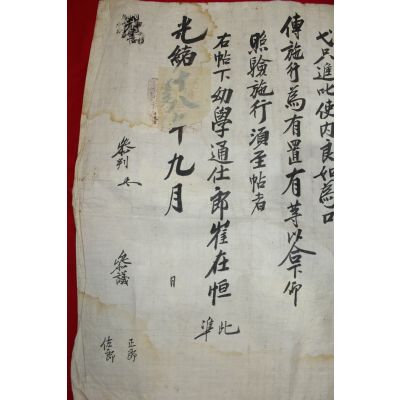 只進叱使內良如爲
傳施行爲有置有等以合下仰
照驗施行須至帖者
右帖下幼學通仕郎崔在恒 此
準
光緖十八年九月 日
參判 參議 正郎
佐郎